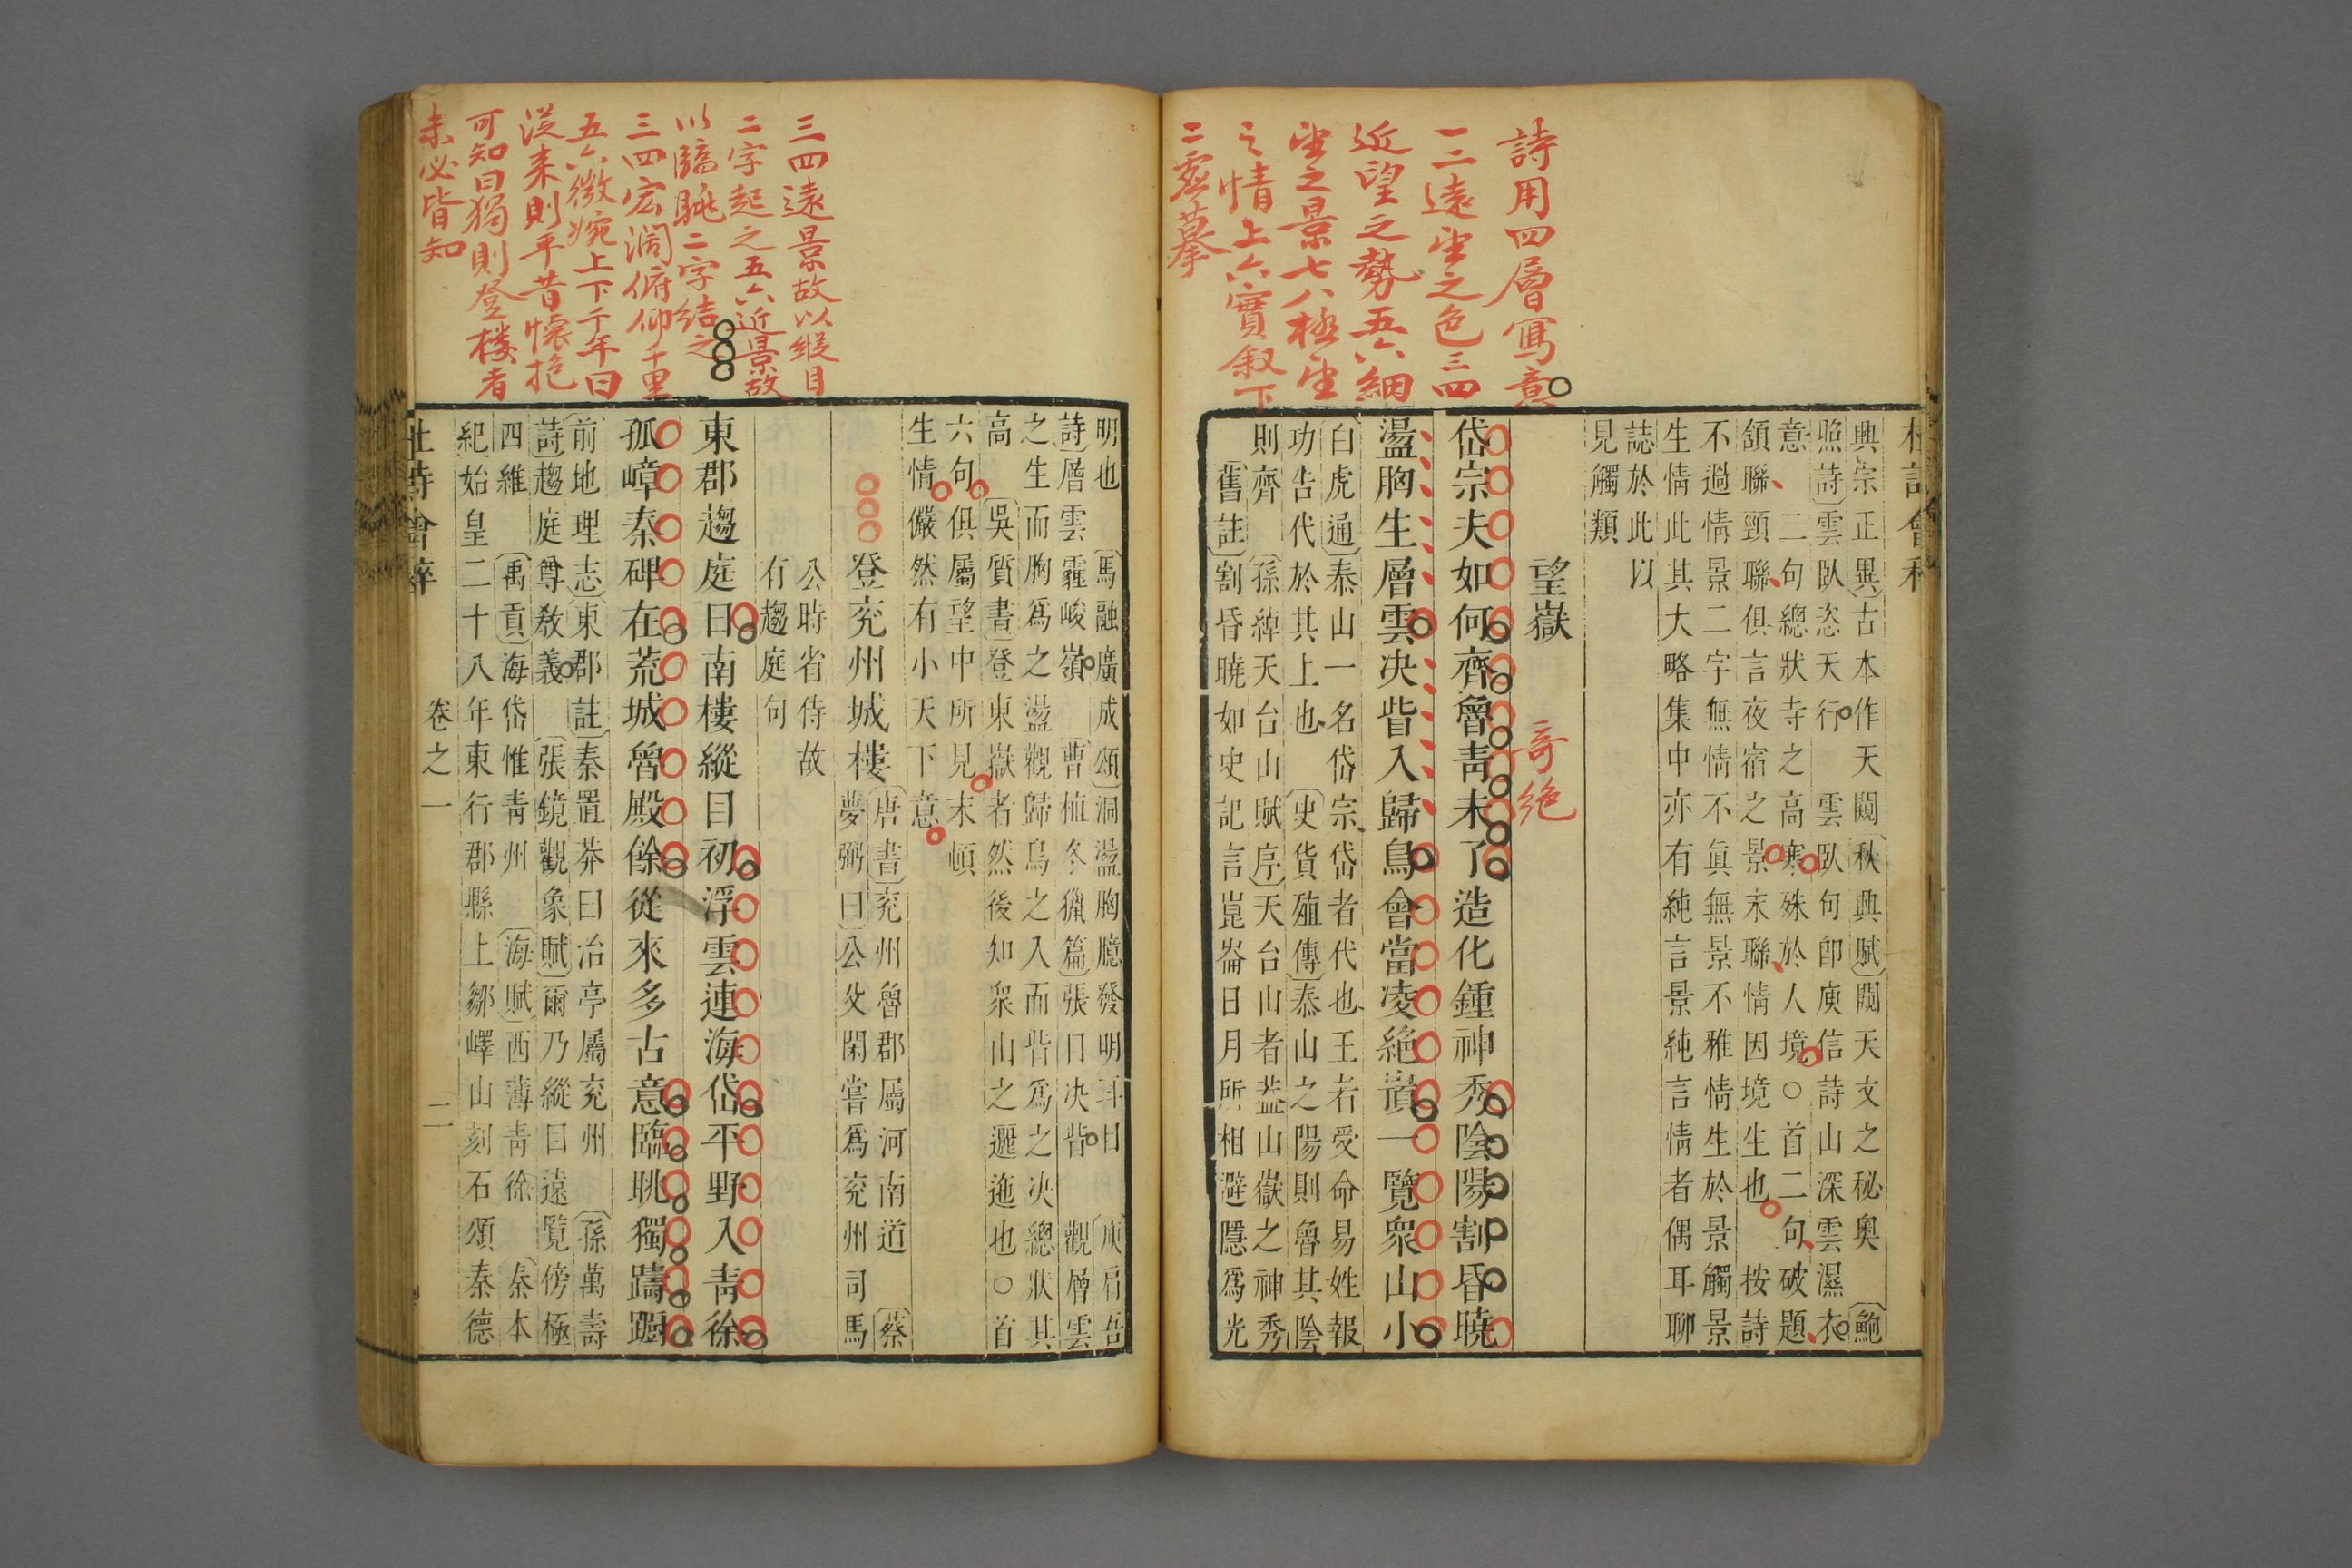 詩用四層寫意
一二遠望之色三四
近望之勢五六細
望之景七八極望
之情上六實叙下
二虛摹
興宗正異古本作天闚秋興賦闚天文之秘奥鮑
照詩雲臥恣天行雲臥句卽庾信詩山深雲濕衣
意二句總狀寺之高寒殊於人境○首二句破題
頷聯頸聯俱言夜宿之景末聯情因境生也按詩
不過情景二字無情不眞無景不雅情生於景觸景
生情此其大略集中亦有純言景純言情者偶耳聊
誌於此以
見觸類
望嶽
奇絶
岱宗夫如何齊魯靑未了造化鍾神秀陰陽割昏曉
盪胸生層雲決眥入歸鳥會當凌絶頂一覽衆山小
白虎通泰山一名岱宗岱者代也王者受命易姓報
功告代於其上也史貨殖傳泰山之陽則魯其陰
則齊孫綽天台山賦序天台山者葢山嶽之神秀
舊註割昏曉如史記言崑崙日月所相避隱爲光
三四遠景故以縱目
二字起之五六近景故
以臨眺二字結之
三四宏濶俯仰千里
五六微婉上下千年曰
從来則平昔懷抱
可知曰獨則登樓者
未必皆知
明也馬融廣成頌洞盪胸臆發明耳目庾肩吾
詩層雲霾峻嶺曹植冬獵篇張目決眥觀層雲
之生而胸爲之盪觀歸鳥之入而眥爲之決總狀其
高吳質書登東嶽者然後知衆山之邐迤也○首
六句俱屬望中所見末頓
生情儼然有小天下意
登兗州城樓唐書兗州魯郡屬河南道蔡
夢弼曰公父閑嘗爲兗州司馬
公時省侍故
有趨庭句
東郡趨庭日南樓縱目初浮雲連海岱平野入靑徐
孤嶂秦碑在荒城魯殿餘從來多古意臨眺獨躊躕
前地理志東郡註秦置莽曰治亭屬兗州孫萬壽
詩趨庭尊敎義張鏡觀象賦爾乃縱目遠覽傍極
四維禹貢海岱惟靑州海賦西薄靑徐秦本
紀始皇二十八年東行郡縣上鄒嶧山刻石頌秦德
卷之一
二